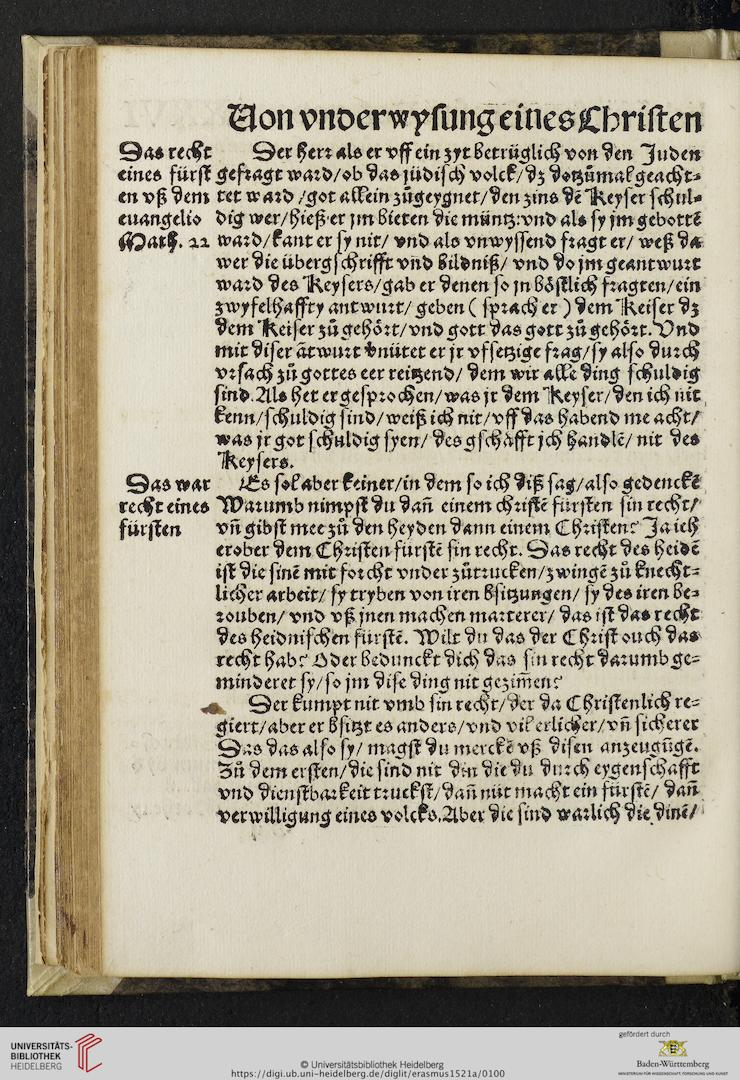 Von vnderwysung eines Christen
Das recht
eines fürst
en vß dem
euangelio
Math. 22
Der herr als er vff ein zyt betrüglich von den Juden
gefragt ward/ob das jüdisch volck/dz dotzůmal geacht⸗
tet ward/got allein zůgeygnet/den zins dē Keyser schul⸗
dig wer/hieß er jm bieten die müntz:vnd als sy jm gebottē
ward/kant er sy nit/ vnd als vnwyssend fragt er/ weß da
wer die übergschrifft vnd bildniß/ vnd do jm geantwurt
ward des Keysers/gab er denen so jn böstlich fragten/ein
zwyfelhaffty antwurt/ geben ( sprach er ) dem Keiser dz
dem Keiser zů gehört/vnd gott das gott zů gehört. Vnd
mit diser ātwurt vnütet er jr vfsetzige frag/sy also durch
vrsach zů gottes eer reitzend/ dem wir alle ding schuldig
sind. Als het er gesprochen/was jr dem Keyser/den ich nit
kenn/schuldig sind/weiß ich nit/vff das habend me acht/
was jr got schuldig syen/ des gschäfft jch handlē/ nit des
Keysers.
Das war
recht eines
fürsten
Es sol aber keiner/in dem so ich diß sag/also gedenckē
Warumb nimpst du dañ einem christē fürsten sin recht/
vñ gibst mee zů den heyden dann einem Christen? Ja ich
erober dem Christen fürstē sin recht. Das recht des heidē
ist die sinē mit forcht vnder zůtrucken/zwingē zů knecht⸗
licher arbeit/ sy tryben von iren bsitzungen/ sy des iren be⸗
rouben/ vnd vß jnen machen marterer/ das ist das recht
des heidnischen fürstē. Wilt du das der Christ ouch das
recht hab? Oder beduncкt dich das sin recht darumb ge⸗
minderet sy/so jm dise ding nit gezim̄en?
Der kumpt nit vmb sin recht/der da Christenlich re⸗
giert/aber er bsitzt es anders/vnd vil erlicher/vñ sicherer
Das das also sy/ magst du merckē vß disen anzeugūgē.
Zů dem ersten/die sind nit din die du durch eygenschafft
vnd dienstbarkeit truckst/dañ nüt macht ein fürstē/ dañ
verwilligung eines volcks.Aber die sind warlich die dinē/
UNIVERSITÄTS-
BIBLIOTHEK
HEIDELBERG
© Universitätsbibliothek Heidelberg
https://digi.ub.uni-heidelberg.de/diglit/erasmus1521a/0100
gefördert durch
Baden-Württemberg
MINISTERIUM FÜR WISSENSCHAFT, FORSCHUNG UND KUNST